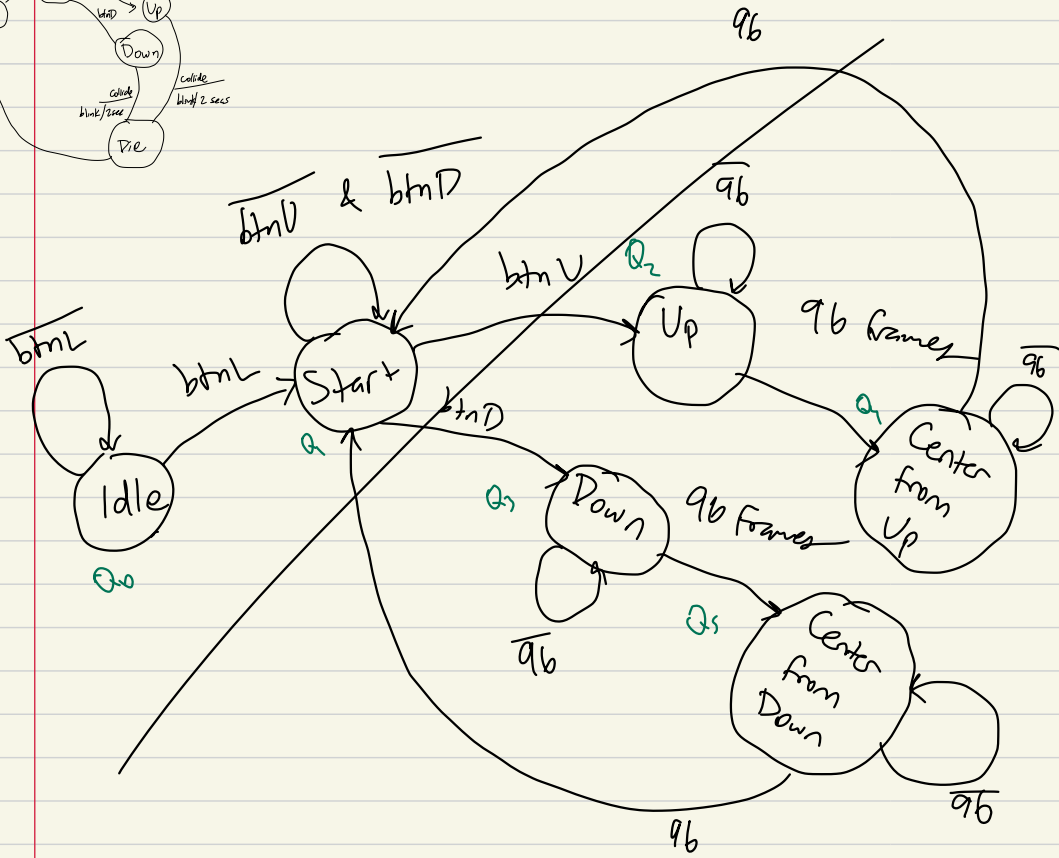 btnD
Up
Down
collide
blink/2sec
collide
blink/2 secs
Die
96
btnU & btnD
96
btnU
Q2
Up
96 frames
96
btnL
btnL
Start
Q1
btnD
Q4
Center
from
Up
Idle
Q0
Q3
Down
96 Frames
96
Q5
Center
from
Down
96
96